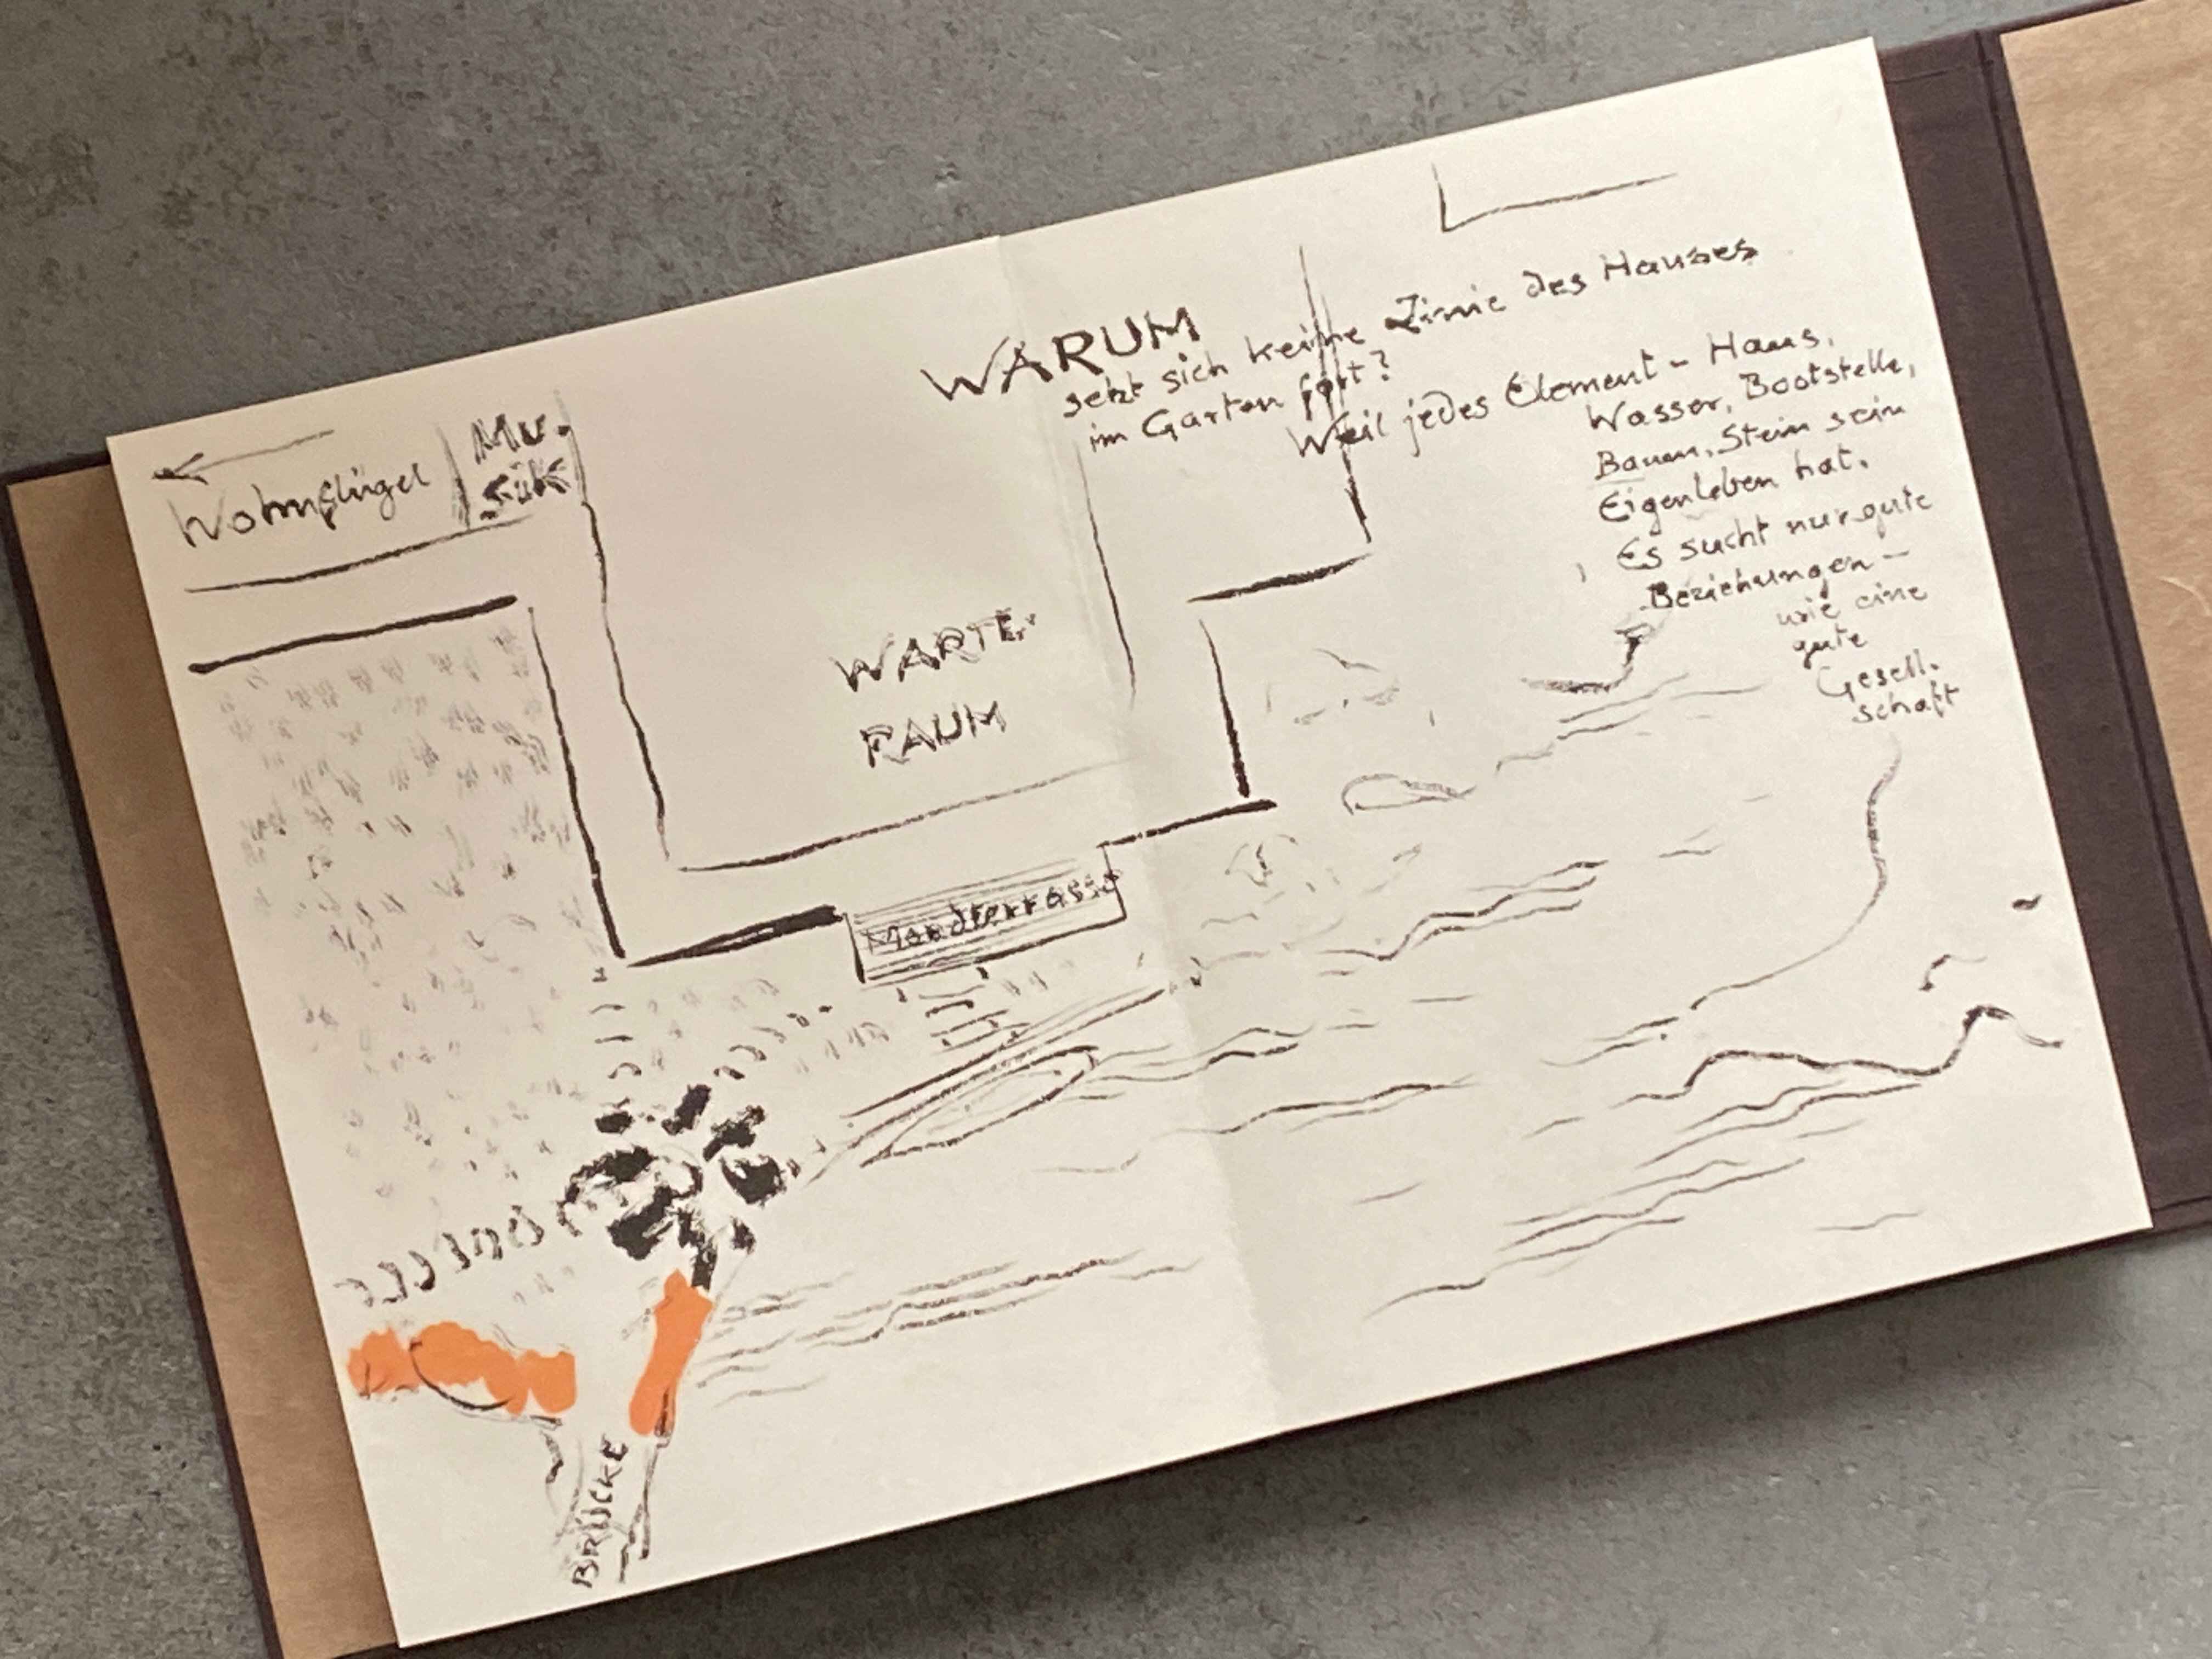 WARUM
setzt sich keine Linie des Hauses
im Garten fort?
Weil jedes Element - Haus,
Wasser, Bootstelle,
Baum, Stein sein
Eigenleben hat.
Es sucht nur gute
Beziehungen -
wie eine
gute
Gesell-
schaft
Wohnflügel
Mu-
sik
WARTE-
RAUM
Mondterrasse
BRÜCKE